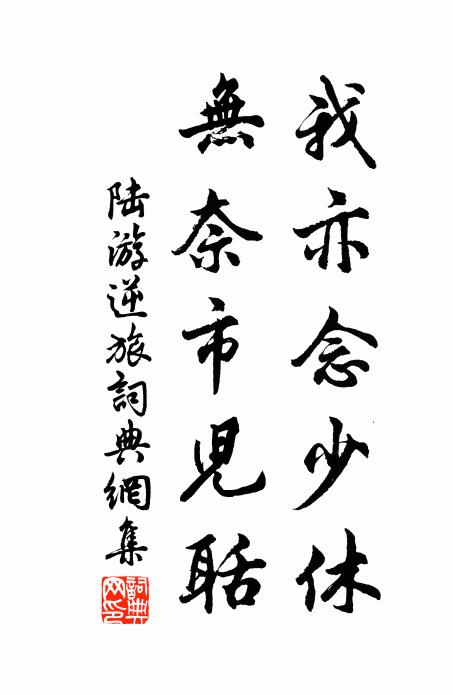 我亦念少休
無奈市兒聒
陆游逆旅詞典網集
詞典网印